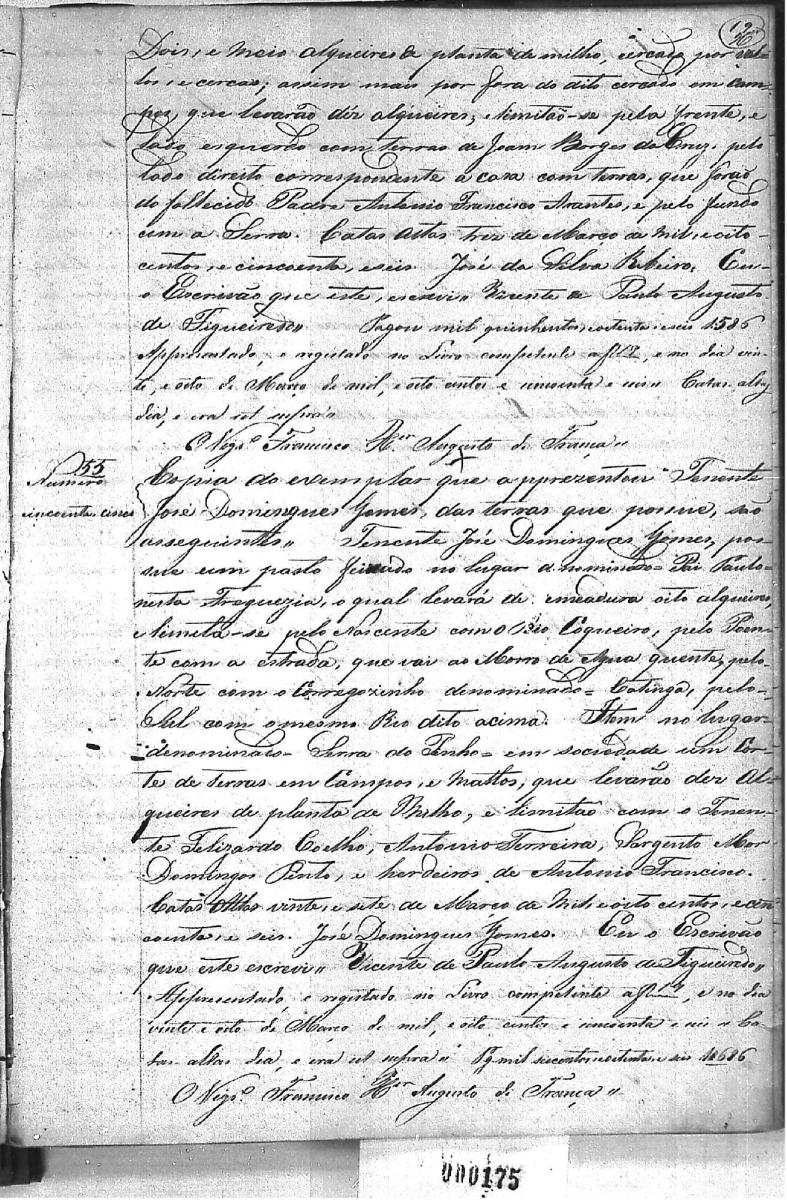 19
Dois, e meio alqueires de planta de milho, cercado, por val-
los, e cercas; assim mais por fora do dito cercado em cam-
pos, que levarão déz alqueires; Limitão-se pela frente, e
lado esquerdo com terras de Joam Borges da Cruz, pelo
lado direito correspondente a casa com terras, que forão
do fallecido Padre Antonio Francisco Arantes, e pelo fundo
com a Serra. Catas Altas trez de Março de mil, e oito-
centos, e cincoenta, e seis. José da Silva Ribeiro. Eu
o Escrivão que este, escrevi,, Vicente de Paulo Augusto
de Figueiredo,, Pagou mil quinhentos, oitenta, e seis 1586
Appresentado, e registado no Livro competente a f, e no dia vin-
te, e oito de Março de mil, e oito centos e cincoenta e seis,, Catas altas
dia, e era ut supra,,
O Vigr.º Francisco X.er Augusto de França,,
55
Numero
cincoenta, cinco
Copia do exemplar que apprezentou Tenente
José Domingues Gomes, das terras que possue, são
asseguentes,, Tenente José Domingues Gomes, pos-
sue um pasto feixado no lugar denominado= Pai Paulo=
nesta Freguezia, o qual levará de semeadura oito alqueires,
Limita-se pelo Nascente com o Rio Coqueiro, pelo Poen-
te com a estrada, que vai ao Morro de Agua quente, pelo
Norte com o Corregozinho denominado= Catinga, pelo-
Sul com o mesmo Rio dito acima. Item no lugar-
denominado- Serra do Pinho= em sociedade um Cor-
te de terras em Campos, e Mattos, que levarão dez Al-
queires de planta de Milho, e limitão com o Tenen-
te Felizardo Coelho, Antonio Ferreira, Sargento Mor
Domingos Pinto, e herdeiros de Antonio Francisco.
Catas Altas vinte, e sete de Março de Mil, e oito centos, e cin-
coenta, e seis. José Domingues Gomes. Eu o Escrivão
que este escrevi,, Vicente de Paulo Augusto de Figueiredo,,
Appresentado, e registado no Livro competente a f 19, e no dia
vinte e oito de Março de mil, e oito centos e cincoenta e seis,, Ca-
tas altas dia, e era ut supra,, Pg. mil seiscentos, oitenta, e seis 1686
O Vigr.º Francisco X.er Augusto de França,,
000175